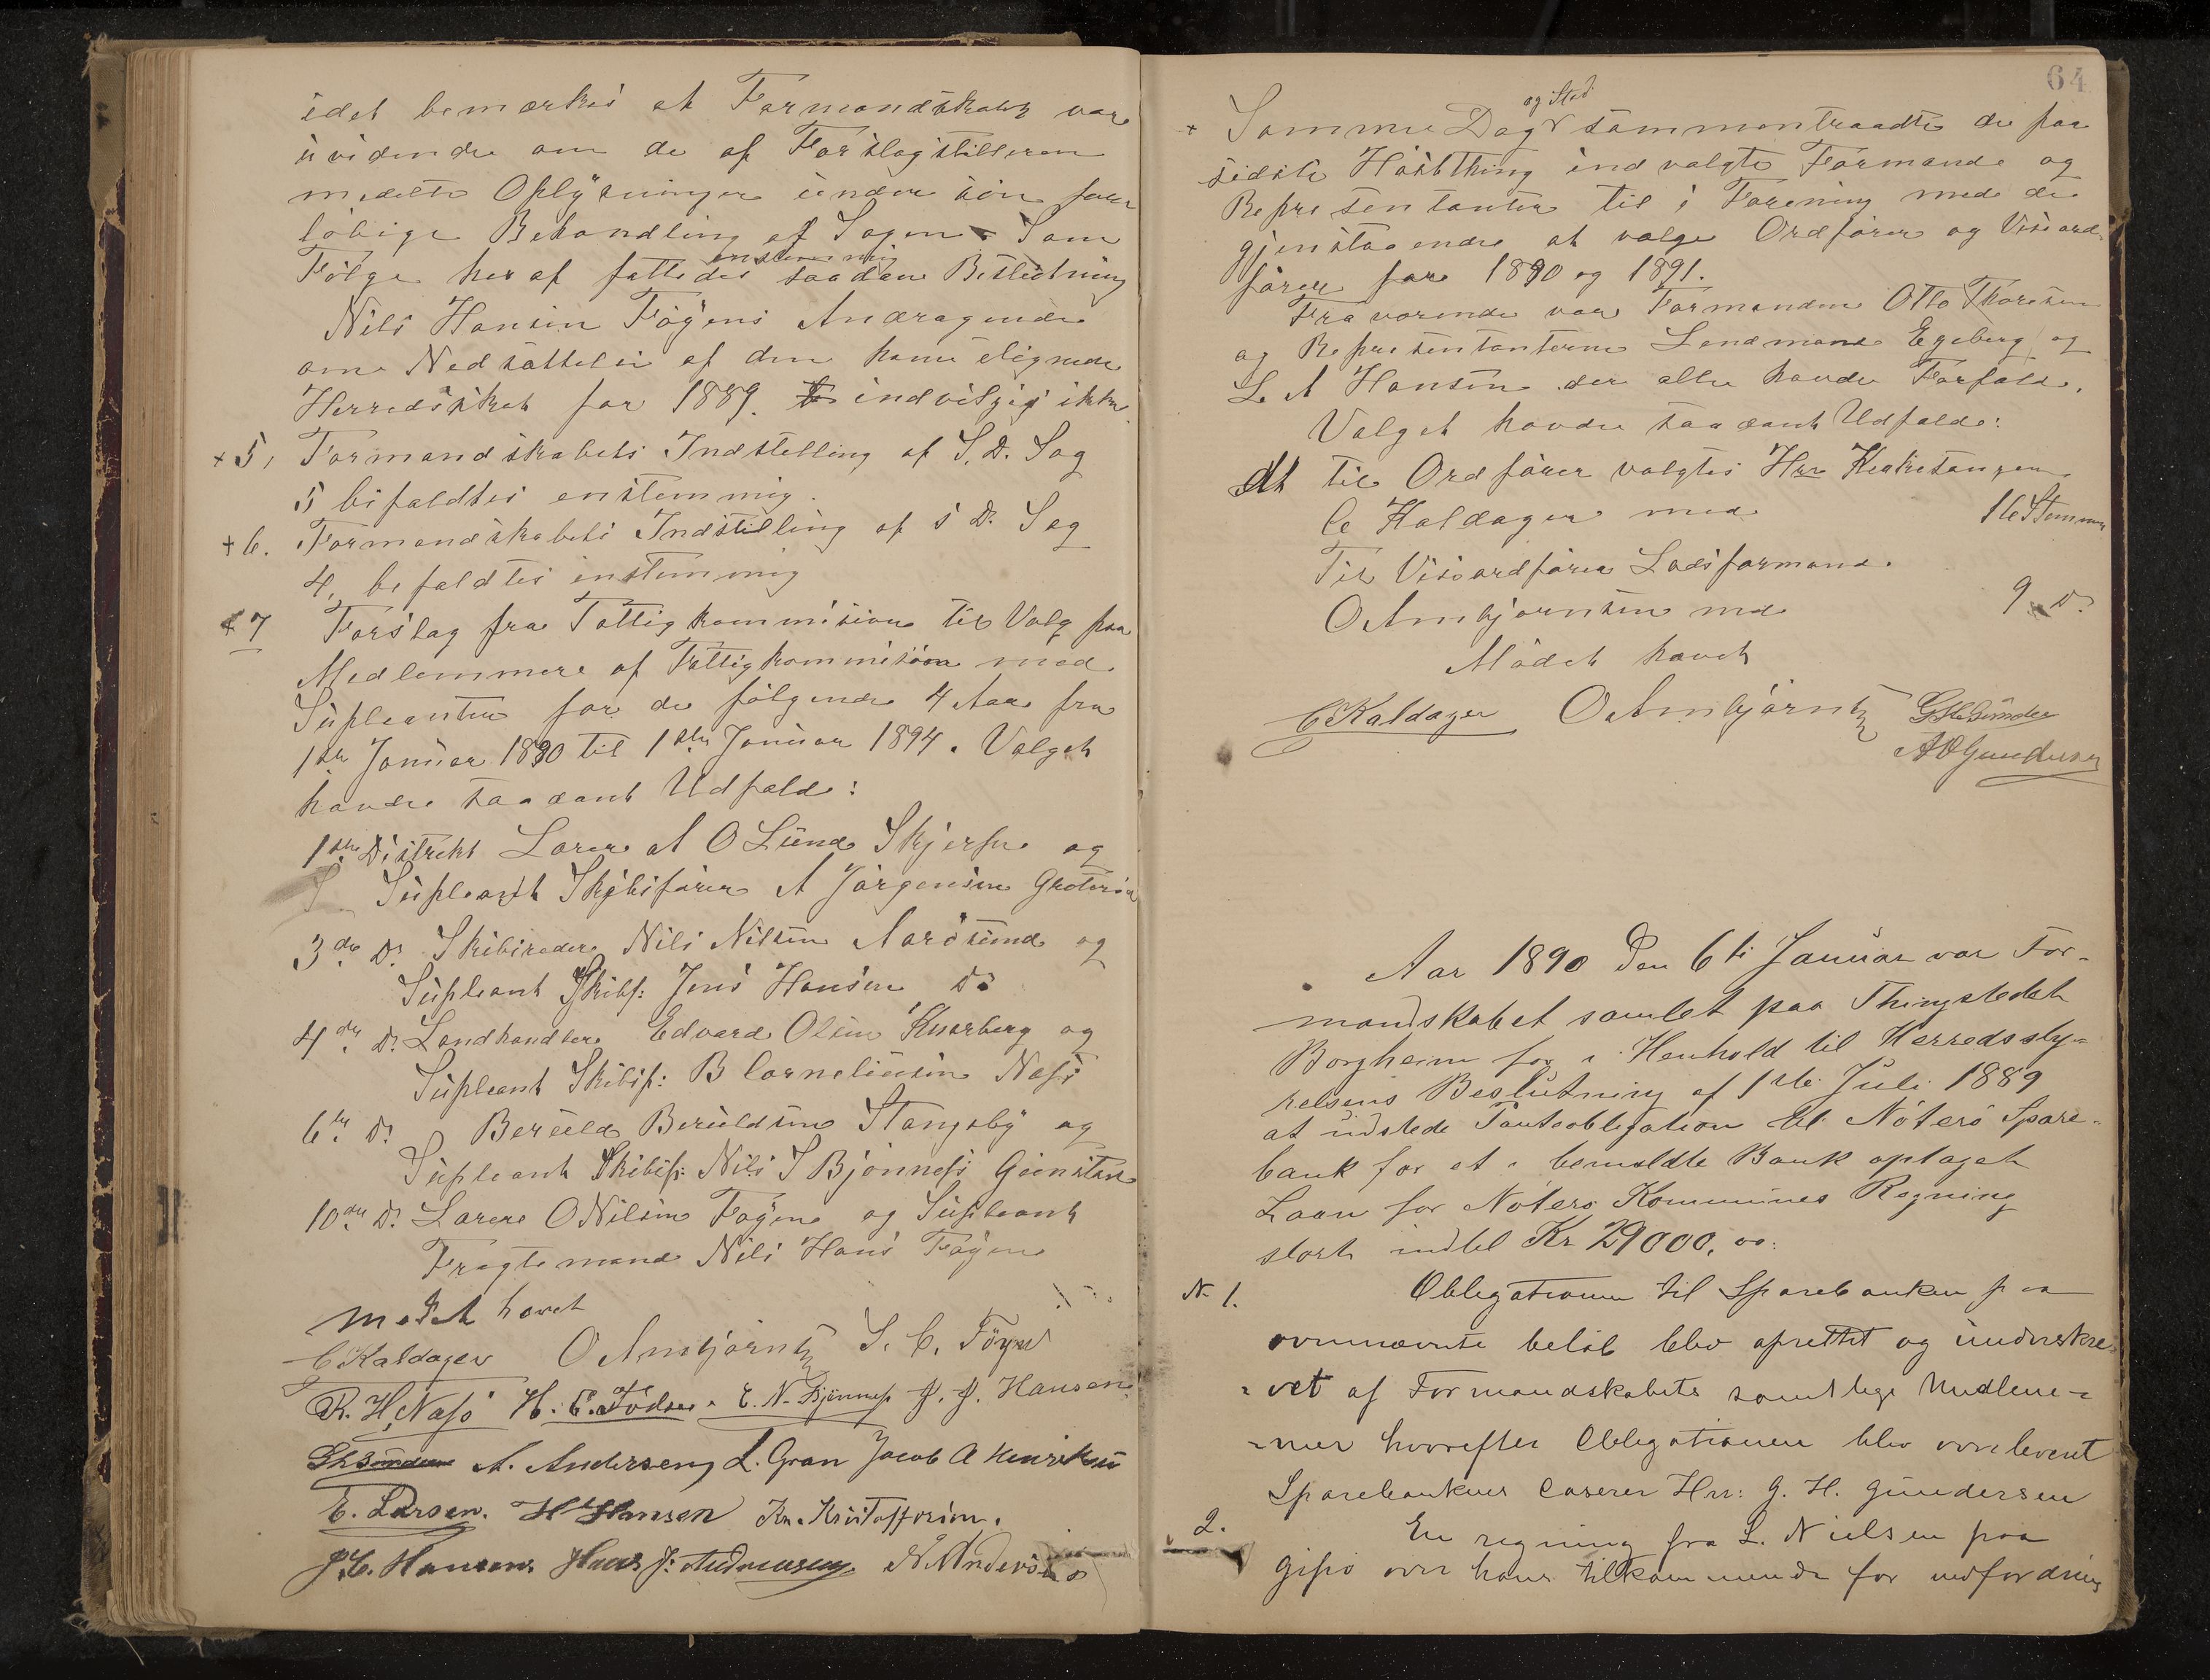 idet bemærkes at Formandskabet var
uvidende om de af Forslagstilleren
meddelte Oplysninger under sin fore
löbige Behandling af Sagen. Som
Fölge heraf fattedes enstemmig saadan Beslutning
Nils Hansen Föyens Andragende
om Nedsættelse af den ham ilignede
Herredsskat for 1889. indvilges ikke
+ 5, Formandskabets Indstilling af S. D. Sag
5 bifaldtes enstemmig.
+ 6. Formandskabets Indstilling af S D. Sag
4, bifaldtes enstemmig
+ 7 Forslag fra Fattigkommisionen til Valg paa
Medlemmer af Fattigkommision med
Supleanter for de fölgende 4 Aar fra
1ste Januar 1890 til 1ste Januar 1894. Valget
havde saadant Udfald:
1ste Distrekt Lærer A O Lund Skjerfve og
Supleant Skibsförer A Jörgensen Grötterön
3die Do Skibsreder Nils Nilsen Aarösund og
Supleant Skibsf: Jens Hansen Do
4de Do Landhandler Edvard Olsen Knarberg og
Supleant Skibsf: B Corneliusen Næss
6te Do Beruld Beruldsen Stangeby og
Supleant Skibsf: Nils S Bjönness Gienstan
10de Do Lærer O Nilsen Föyen og Supleant
Fragtemand Nils Hans Föyen
Mødet hævet
C Kaldager O Ambjörnsen S. C. Föyn
R. H. Næss H. C. Födsen. E. N. Bjönness J. J. Hansen.
A. Andersen L. Gran Jacob A Henriksen
E. Larsen. H Hansen Kr. Kristoffersen.
J. C. Hansen. Hans J. Andreasen N. Andersen
64
+ Samme Dag og Sted sammentraadte de paa
sidste Höstthing indvalgte Formænd og
Repræsentanter til i Forening med de
gjenstaaende at vælge Ordförer og Viseord-
förer for 1890 og 1891.
Fraværende var Formanden Otto Thoresen
og Repræsentanterne Lendsmand Egeberg og
L. A Hansen der alle havde Forfald.
Valget havde saadant Udfald:
At til Ordförer valgtes Hrr Kirkesanger
C Kaldager med 16 Stemmer
Til Viseordförer Lodsformand
O Ambjörnsen med 9 Do
Mödet hævet
C Kaldager O Ambjörnsen G H Gunder
A O Gundersen
Aar 1890 Den 6te Januar var For-
mandskabet samlet paa Thingstedet
Borgheim for i Henhold til Herredssty-
relsens Beslutning af 1ste Juli 1889
at udstede Panteobligation til Nöterö Spare-
bank for et i bemeldte Bank optaget
Laan for Nöterö Kommunes Regning
stort indtil Kr 29000,00:
No 1. Obligationen til Sparebanken paa
ovennævnte belöb blev oprettet og underskre-
vet af Formandskabets samtlige Medlem-
mer hvorefter Obligationen blev overlevert
Sparebankens Caserer Hrr: G. H. Gundersen
2. En regning fra L. Nielsen paa
Gipö over hans tilkommende for udfordring